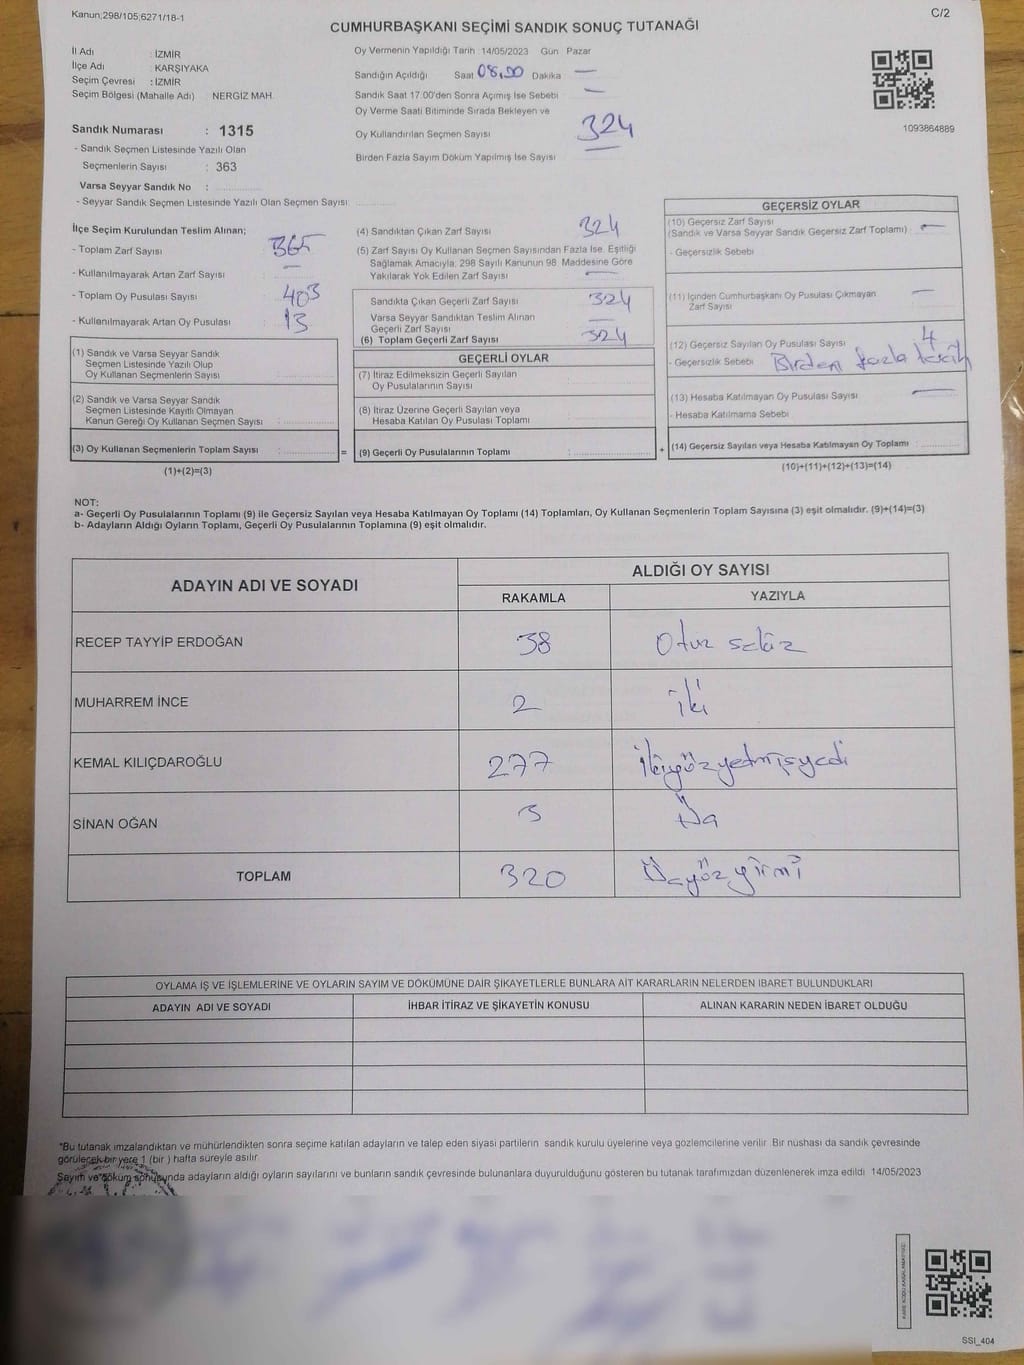 Kanun;298/105;6271/18-1
C/2
CUMHURBAŞKANI SEÇİMİ SANDIK SONUÇ TUTANAĞI
İl Adı : İZMİR
İlçe Adı : KARŞIYAKA
Seçim Çevresi : İZMİR
Seçim Bölgesi (Mahalle Adı) NERGİZ MAH.
Sandık Numarası : 1315
- Sandık Seçmen Listesinde Yazılı Olan
Seçmenlerin Sayısı : 363
Varsa Seyyar Sandık No :
- Seyyar Sandık Seçmen Listesinde Yazılı Olan Seçmen Sayısı:
Oy Vermenin Yapıldığı Tarih : 14/05/2023 Gün Pazar
Sandığın Açıldığı Saat 08,00 Dakika —
Sandık Saat 17.00'den Sonra Açımış İse Sebebi —
Oy Verme Saati Bitiminde Sırada Bekleyen ve
Oy Kullandırılan Seçmen Sayısı 324
Birden Fazla Sayım Döküm Yapılmış İse Sayısı —
1093864889
İlçe Seçim Kurulundan Teslim Alınan;
- Toplam Zarf Sayısı : 365
- Kullanılmayarak Artan Zarf Sayısı : —
- Toplam Oy Pusulası Sayısı : 403
- Kullanılmayarak Artan Oy Pusulası : 13
(1) Sandık ve Varsa Seyyar Sandık
Seçmen Listesinde Yazılı Olup
Oy Kullanan Seçmenlerin Sayısı :
(2) Sandık ve Varsa Seyyar Sandık
Seçmen Listesinde Kayıtlı Olmayan
Kanun Gereği Oy Kullanan Seçmen Sayısı :
(3) Oy Kullanan Seçmenlerin Toplam Sayısı :
(1)+(2)=(3)
(4) Sandıktan Çıkan Zarf Sayısı 324
(5) Zarf Sayısı Oy Kullanan Seçmen Sayısından Fazla İse, Eşitliği
Sağlamak Amacıyla; 298 Sayılı Kanunun 98. Maddesine Göre
Yakılarak Yok Edilen Zarf Sayısı —
Sandıkta Çıkan Geçerli Zarf Sayısı 324
Varsa Seyyar Sandıktan Teslim Alınan
Geçerli Zarf Sayısı —
(6) Toplam Geçerli Zarf Sayısı 324
GEÇERLİ OYLAR
(7) İtiraz Edilmeksizin Geçerli Sayılan
Oy Pusulalarının Sayısı :
(8) İtiraz Üzerine Geçerli Sayılan veya
Hesaba Katılan Oy Pusulası Toplamı :
= (9) Geçerli Oy Pusulalarının Toplamı :
GEÇERSİZ OYLAR
(10) Geçersiz Zarf Sayısı
(Sandık ve Varsa Seyyar Sandık Geçersiz Zarf Toplamı) : —
- Geçersizlik Sebebi
(11) İçinden Cumhurbaşkanı Oy Pusulası Çıkmayan
Zarf Sayısı —
(12) Geçersiz Sayılan Oy Pusulası Sayısı 4
- Geçersizlik Sebebi Birden fazla tercih
(13) Hesaba Katılmayan Oy Pusulası Sayısı —
- Hesaba Katılmama Sebebi
+ (14) Geçersiz Sayılan veya Hesaba Katılmayan Oy Toplamı :
(10)+(11)+(12)+(13)=(14)
NOT:
a- Geçerli Oy Pusulalarının Toplamı (9) ile Geçersiz Sayılan veya Hesaba Katılmayan Oy Toplamı (14) Toplamları, Oy Kullanan Seçmenlerin Toplam Sayısına (3) eşit olmalıdır. (9)+(14)=(3)
b- Adayların Aldığı Oyların Toplamı, Geçerli Oy Pusulalarının Toplamına (9) eşit olmalıdır.
ADAYIN ADI VE SOYADI
ALDIĞI OY SAYISI
RAKAMLA YAZIYLA
RECEP TAYYİP ERDOĞAN 38 Otuz sekiz
MUHARREM İNCE 2 iki
KEMAL KILIÇDAROĞLU 277 ikiyüzyetmişyedi
SİNAN OĞAN 3 Üç
TOPLAM 320 Üçyüzyirmi
OYLAMA İŞ VE İŞLEMLERİNE VE OYLARIN SAYIM VE DÖKÜMÜNE DAİR ŞİKAYETLERLE BUNLARA AİT KARARLARIN NELERDEN İBARET BULUNDUKLARI
ADAYIN ADI VE SOYADI İHBAR İTİRAZ VE ŞİKAYETİN KONUSU ALINAN KARARIN NEDEN İBARET OLDUĞU
*Bu tutanak imzalandıktan ve mühürlendikten sonra seçime katılan adayların ve talep eden siyasi partilerin sandık kurulu üyelerine veya gözlemcilerine verilir. Bir nüshası da sandık çevresinde
görülecek bir yere 1 (bir ) hafta süreyle asılır.
Sayım ve döküm sonucunda adayların aldığı oyların sayılarını ve bunların sandık çevresinde bulunanlara duyurulduğunu gösteren bu tutanak tarafımızdan düzenlenerek imza edildi. 14/05/2023
SSI_404